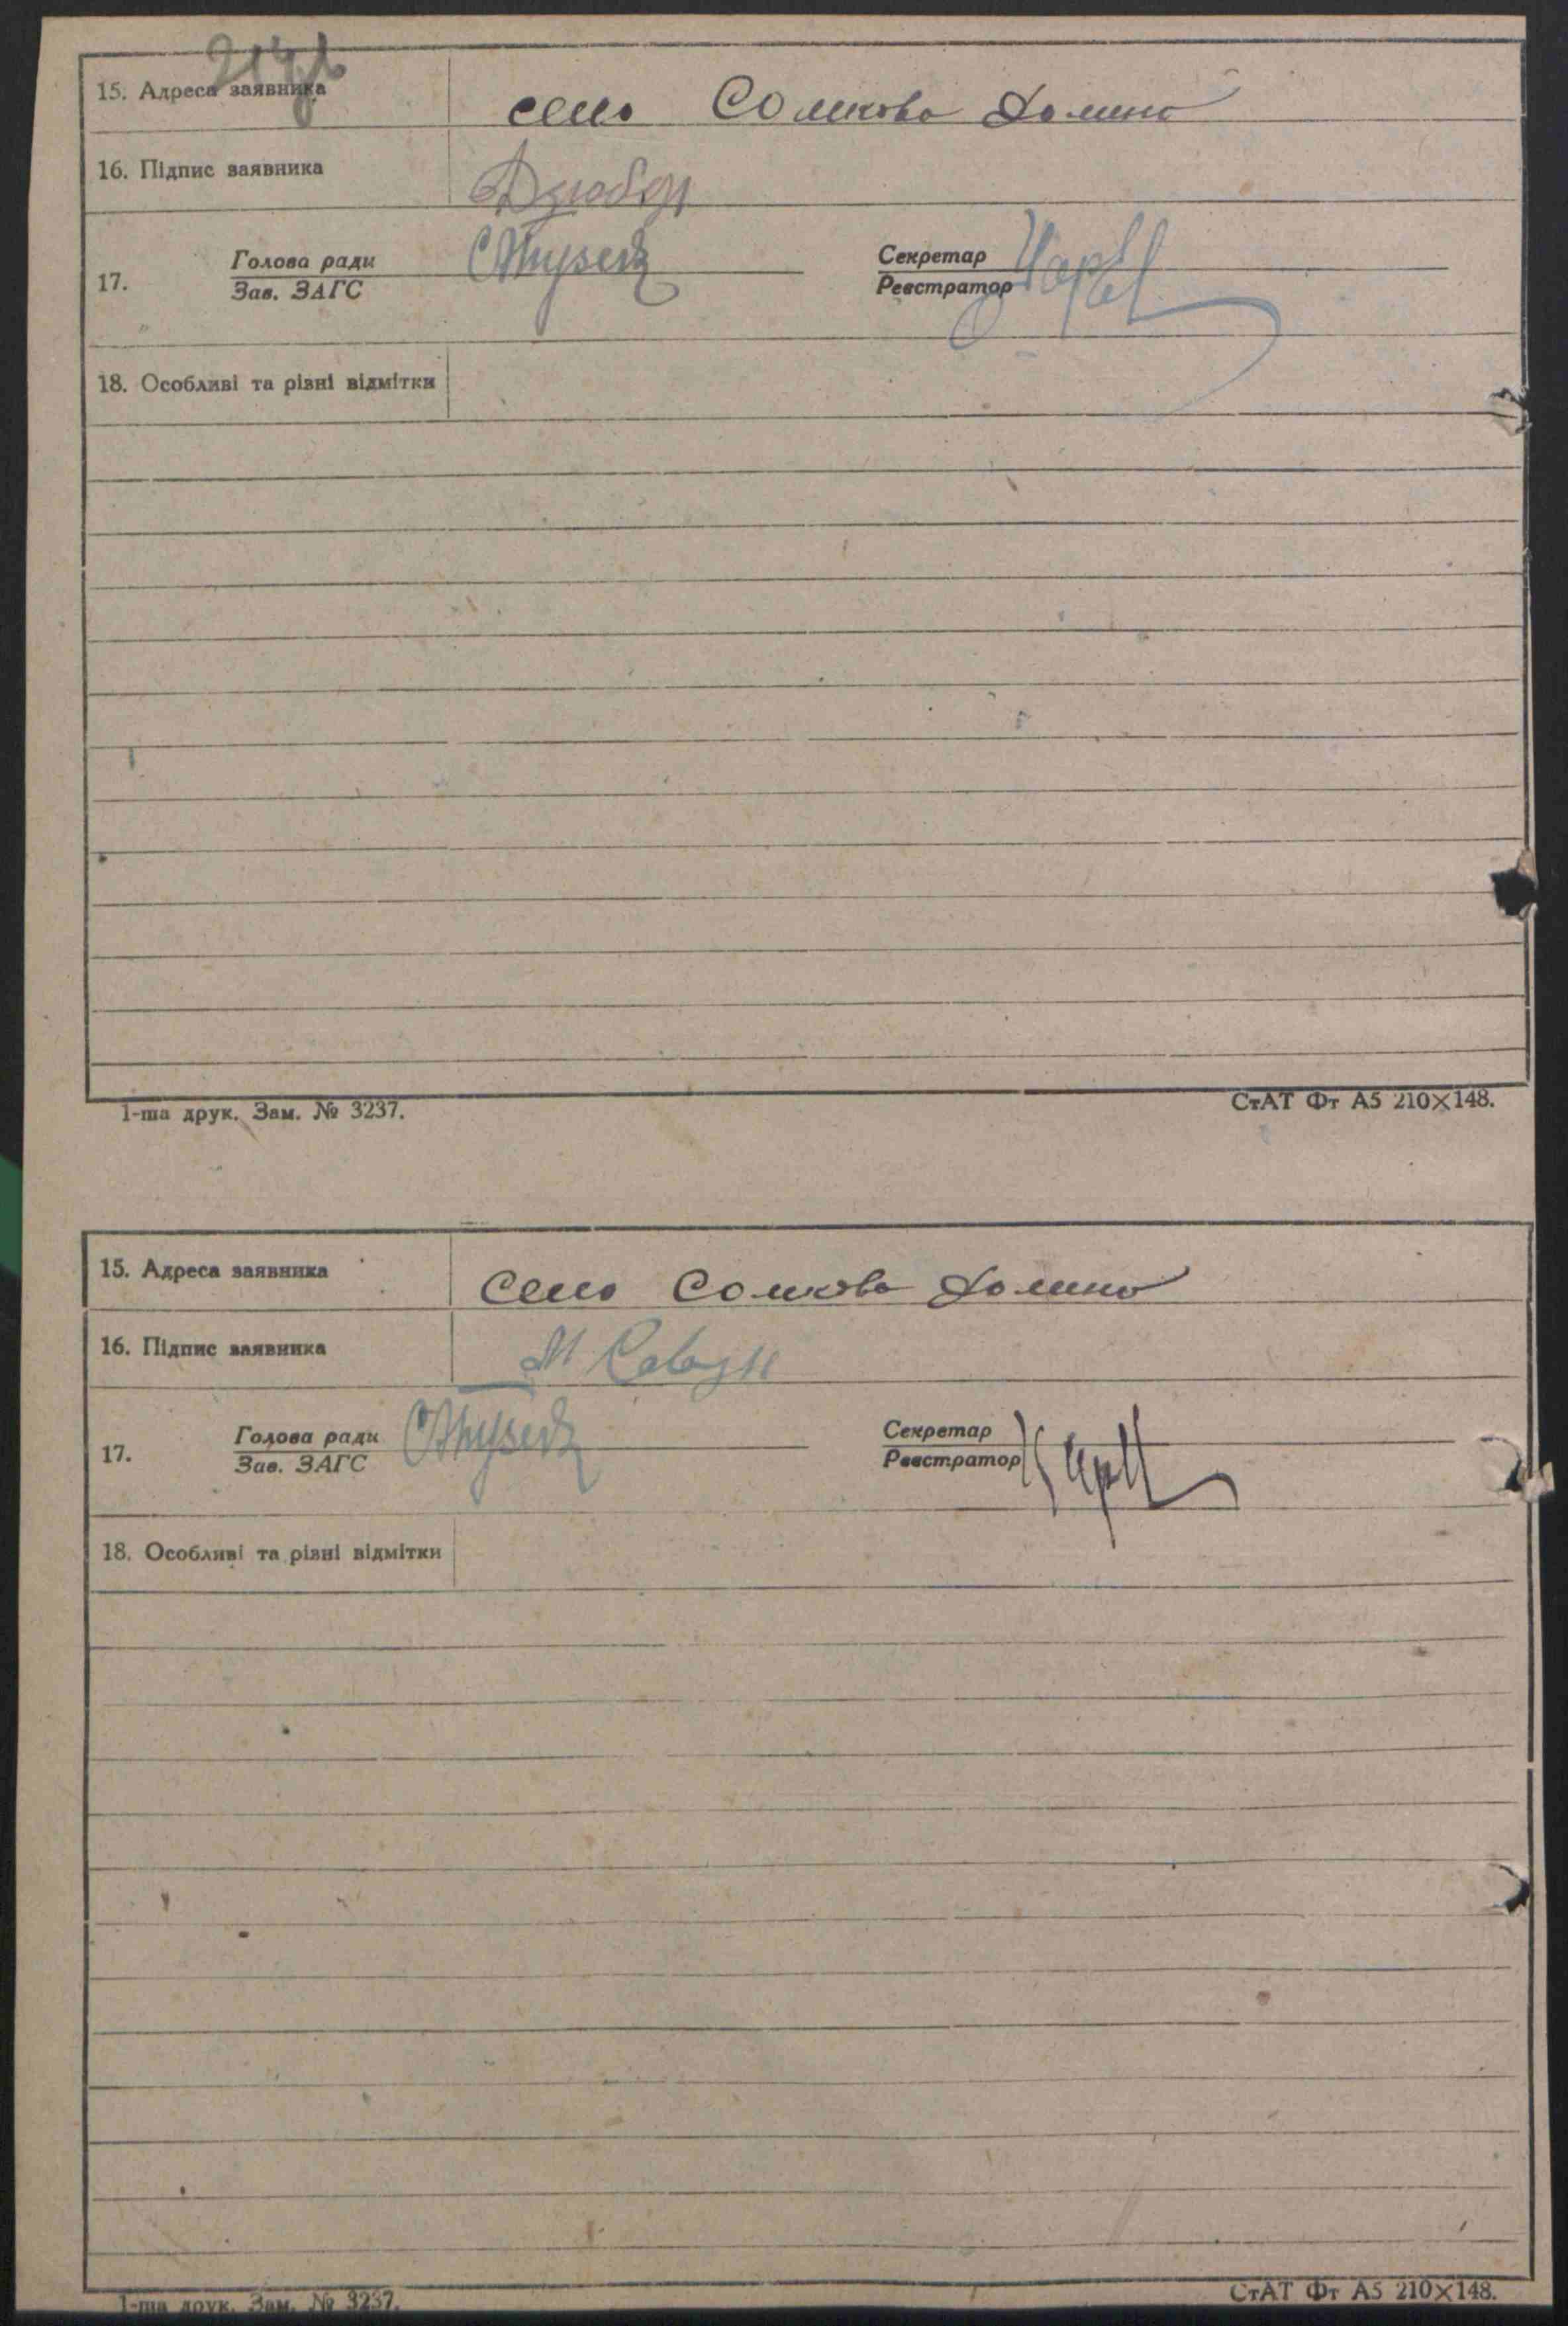 15. Адреса заявника село Сомкова Долина
16. Підпис заявника Дзюба
17. Голова ради Секретар
Зав. ЗАГС Реєстратор
18. Особливі та різні відмітки
1-ша друк. Зам. № 3237. СтАТ Фт А5 210×148.
15. Адреса заявника Село Сомкова Долина
16. Підпис заявника
17. Голова ради Секретар
Зав. ЗАГС Реєстратор
18. Особливі та різні відмітки
1-ша друк. Зам. № 3237. СтАТ Фт А5 210×148.